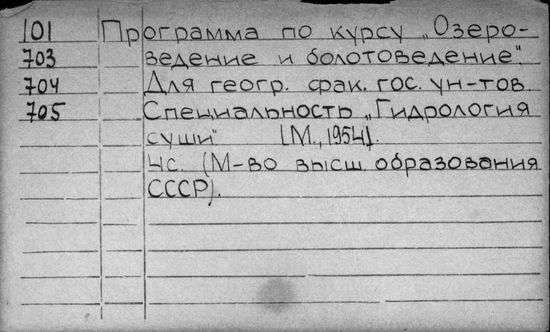 101 Программа по курсу „Озеро-
703 ведение и болотоведение".
704 Для геогр. фак. гос. ун-тов.
705 Специальность „Гидрология
суши" [М., 1954].
4с. (М-во высш. образования
СССР).